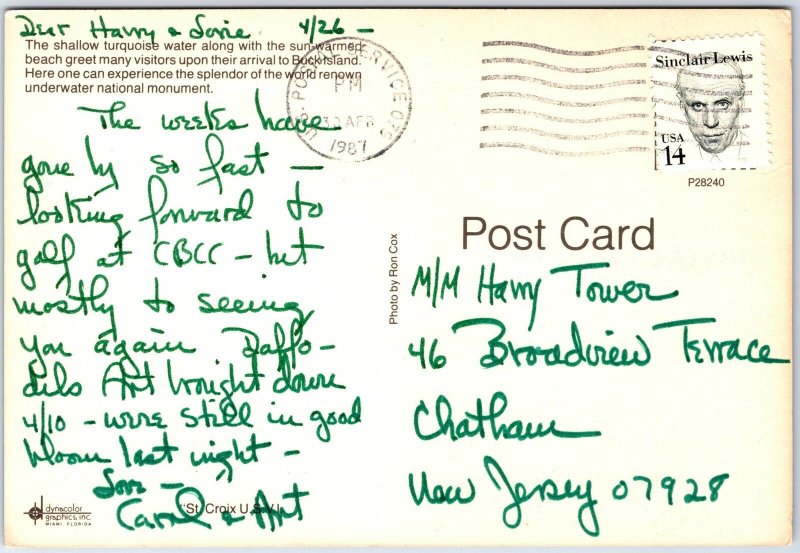 Dear Harry & Lorie 4/26 -
The shallow turquoise water along with the sun-warmed
beach greet many visitors upon their arrival to Buck Island.
Here one can experience the splendor of the world renown
underwater national monument.
The weeks have
gone by so fast —
looking forward to
golf at CBCC - but
mostly to seeing
you again Daffo-
dils Art brought down
4/10 - were still in good
bloom last night -
Love -
Carol & Art
dynacolor
graphics, inc.
MIAMI, FLORIDA
St. Croix U.S.V.I.
U.S. POSTAL SERVICE
PM
30 APR
1987
Sinclair Lewis
USA
14
P28240
Post Card
Photo by Ron Cox
M/M Harry Tower
46 Broadview Terrace
Chatham
New Jersey 07928